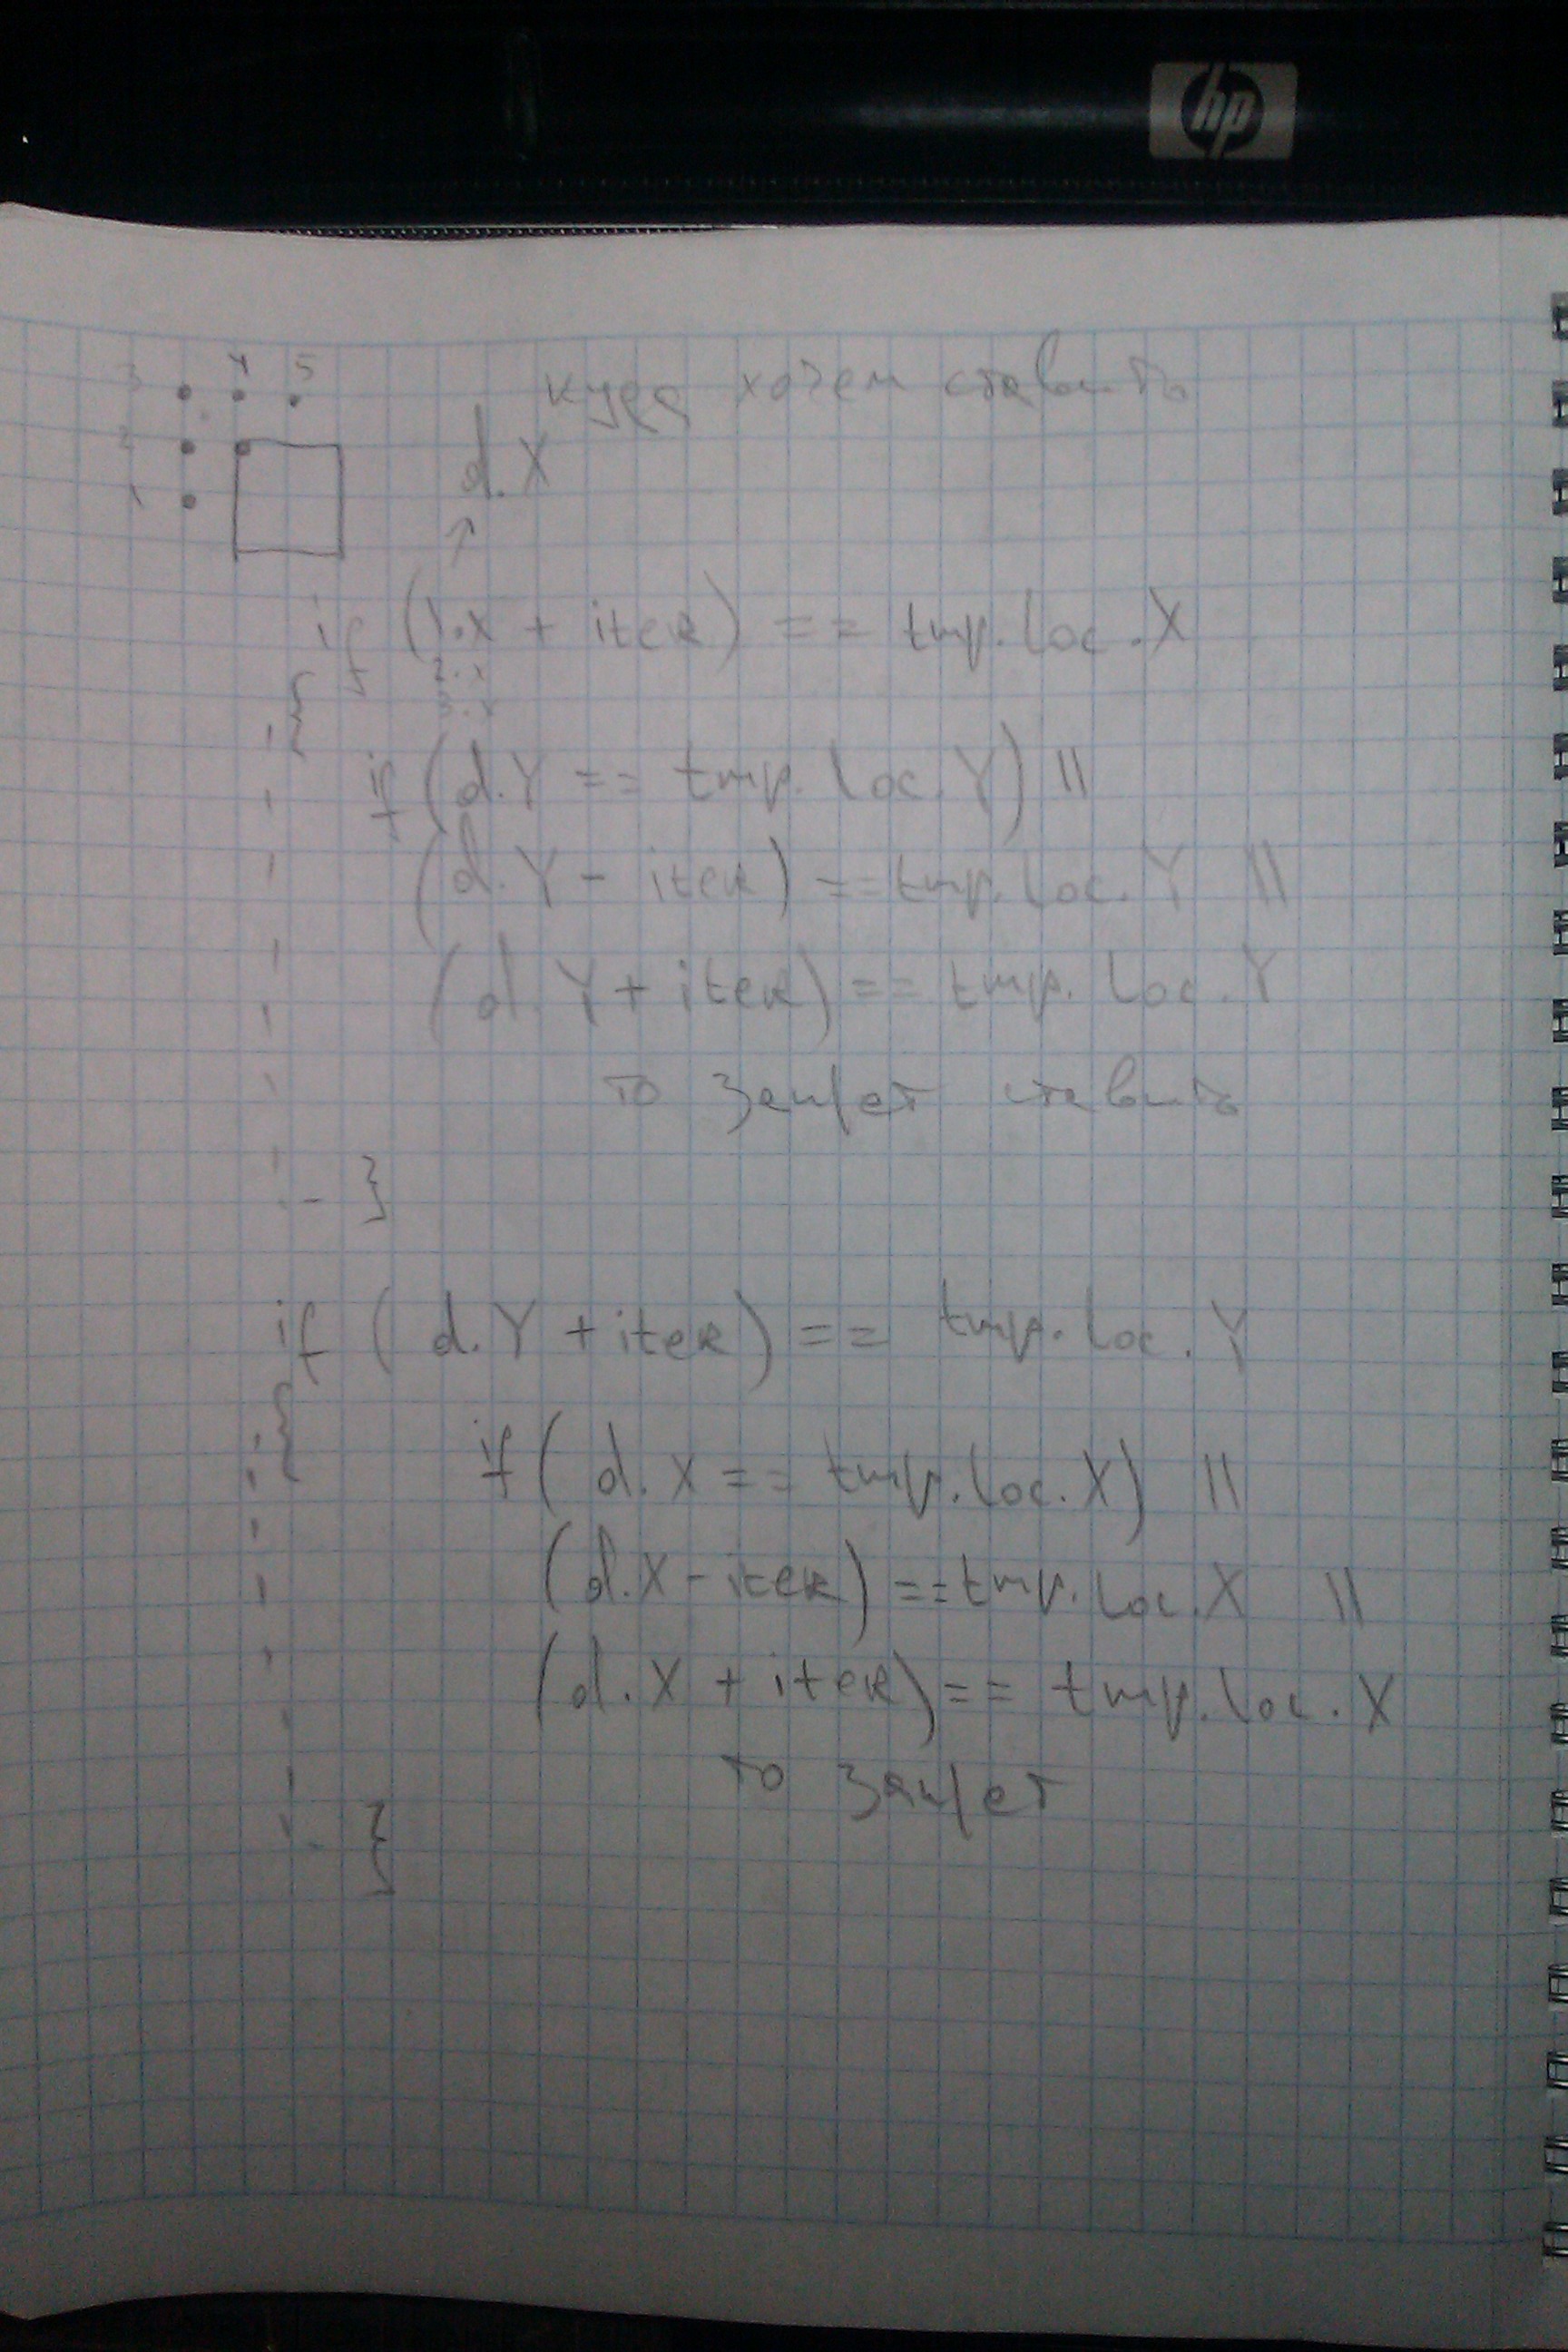 hp
3 4 5
куда хочем ставить
2
d.X
1
↑
if (1.x + iter) == tmp.loc.X
2.x
3.x
{
if (d.Y == tmp.loc.Y) ||
(d.Y - iter) == tmp.loc.Y ||
(d.Y + iter) == tmp.loc.Y
то запрет ставить
}
if (d.Y + iter) == tmp.loc.Y
{
if (d.X == tmp.loc.X) ||
(d.X - iter) == tmp.loc.X ||
(d.X + iter) == tmp.loc.X
то запрет
}